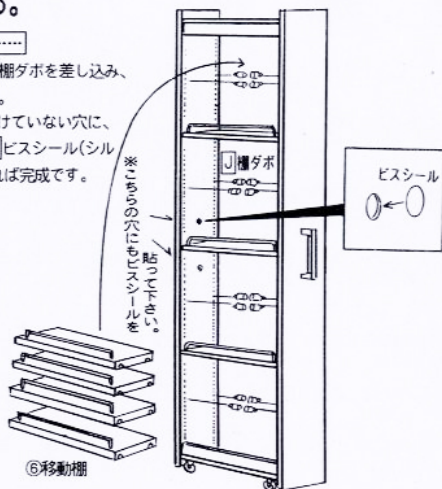 る。
棚ダボを差し込み、
。
けていない穴に、
ビスシール(シル
れば完成です。
※こちらの穴にもビスシールを
貼って下さい。
J 棚ダボ
ビスシール
⑥移動棚